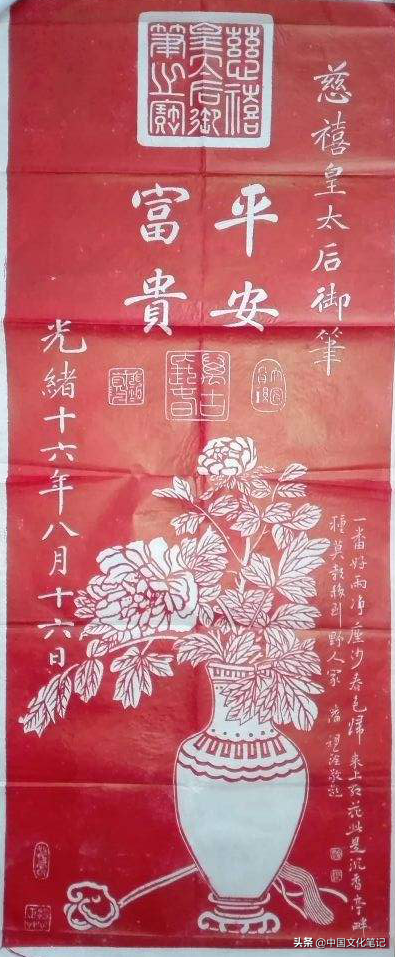 慈禧皇太后御筆之寶
慈禧皇太后御筆
平安
富貴
光緒十六年八月十六日
一番好雨净塵沙春色歸來上苑花此是沉香亭畔
種莫教移到野人家 潘祖蔭敬題
头条 @中国文化笔记